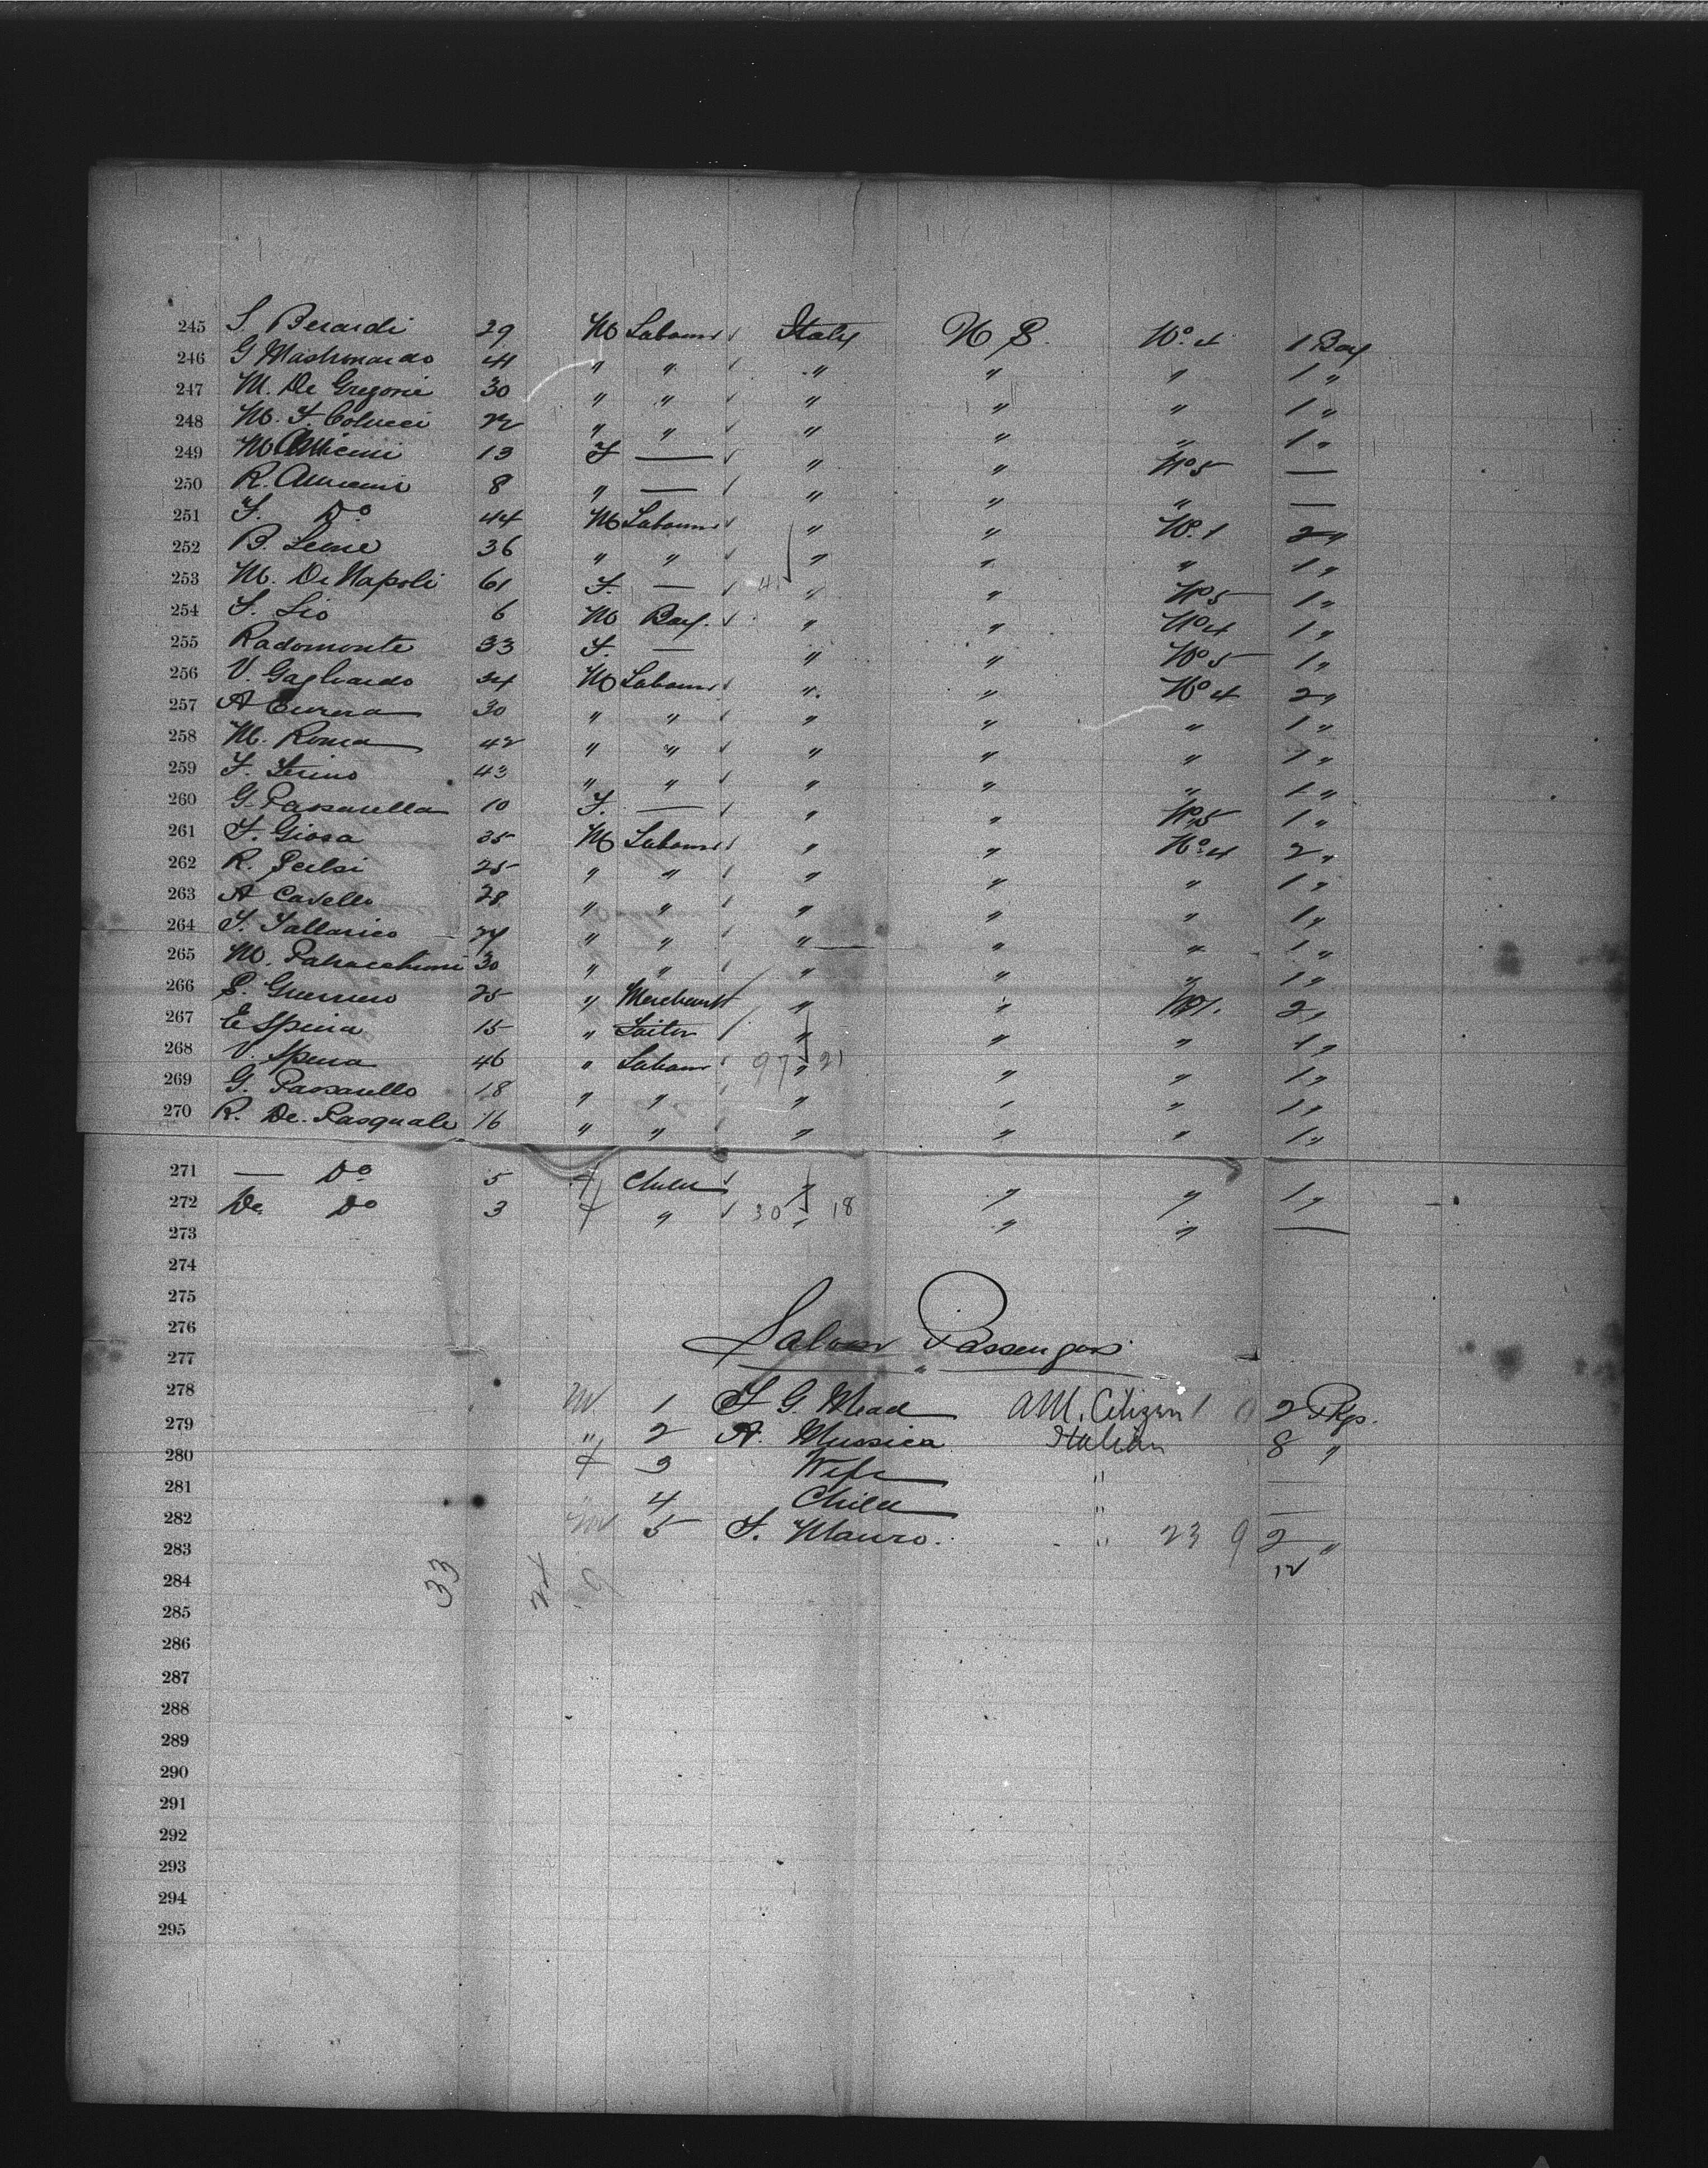 245 S. Berardi 29 M Labourer Italy U S. No. 4 1 Bag
246 G Mastronardo 41 " " " " " 1 "
247 M. De Gregorie 30 " " " " " 1 "
248 M. F. Colucci 22 " " " " " 1 "
249 M 13 F — " " No 5 —
250 R. 8 " — " " " —
251 F. Do 44 M Labourer " " No. 1 2 "
252 B. Leone 36 " " " " " 1 "
253 M. De Napoli 61 F. — " " No 5 1 "
254 S. Lio 6 M Boy. " " No 4 1 "
255 Radomonte 33 F. — " " No 5 1 "
256 V. Gagliardo 34 M Labourer " " No 4 2 "
257 A 30 " " " " " 1 "
258 M. Roma 42 " " " " " 1 "
259 F. 43 " " " " " 1 "
260 G. Passarella 10 F. — " " No 5 1 "
261 F. Giosa 35 M Labourer " " No. 4 2 "
262 R. 25 " " " " " 1 "
263 A Cavello 28 " " " " " 1 "
264 F. Tallarico 24 " " " " " 1 "
265 M. 30 " " " " " 1 "
266 P. Guerriero 25 " Merchant " " No 1. 2 "
267 E Spina 15 " Tailor " " " 1 "
268 V. Spina 46 " Labour 97 " 21 " " 1 "
269 G. Passarello 18 " " " " " 1 "
270 R. De. Pasquale 16 " " " " " 1 "
271 — Do 5 f Child " " " 1 "
272 De Do 3 f " 30 " 18 " " —
273
274
275
276
Saloon Passengers
277
278 M 1 F G. Mead AM. Citizen 1 0 2 Pkgs.
279 " 2 A. Mussica Italian 8 "
280 f 3 Wife " —
281 " 4 Child " —
282 M 5 F. Mauro. " 23 9 2 "
283 12
33 24 9
284
285
286
287
288
289
290
291
292
293
294
295